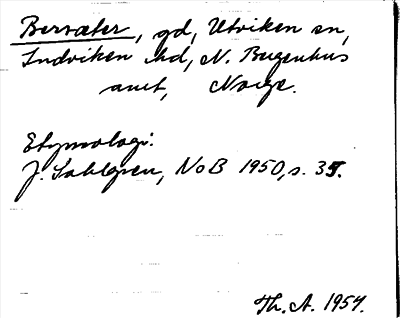 Bersæter, gd, Utviken sn,
Indviken hd, N. Bergenhus
amt, Norge.
Etymologi:
J. Sahlgren, NoB 1950, s. 35.
Th. A. 1957.